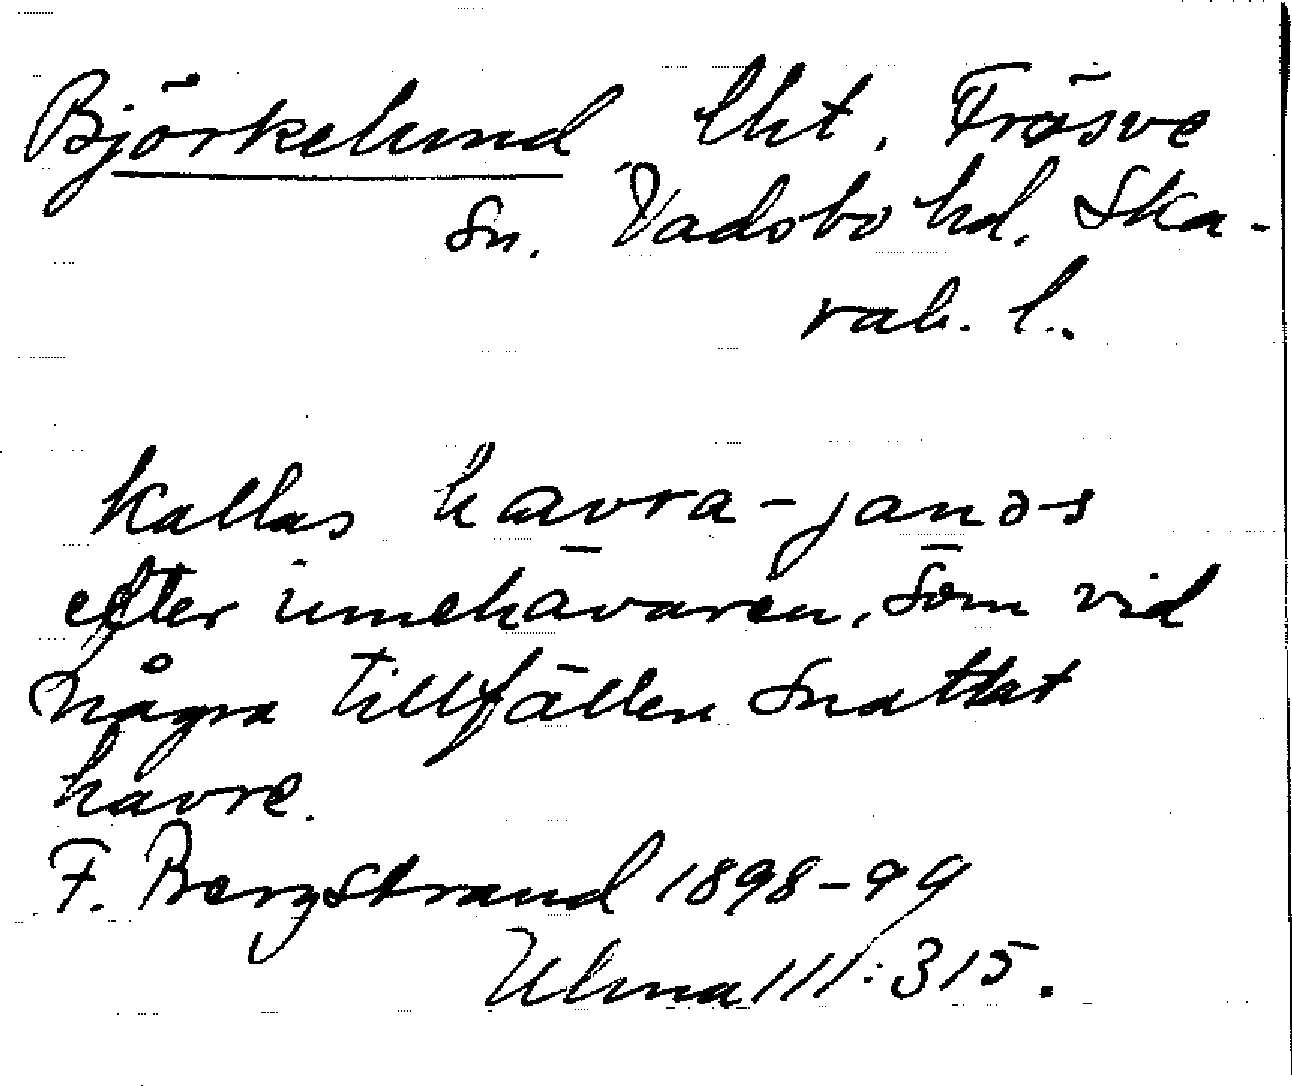 Björkelund lht. Fräsve
sn. Vadsbo hd. Ska-
rab. l.
kallas havra-janəs
efter innehavaren, som vid
några tillfällen snattat
havre.
F. Bergstrand 1898-99
Ulma 111:315.